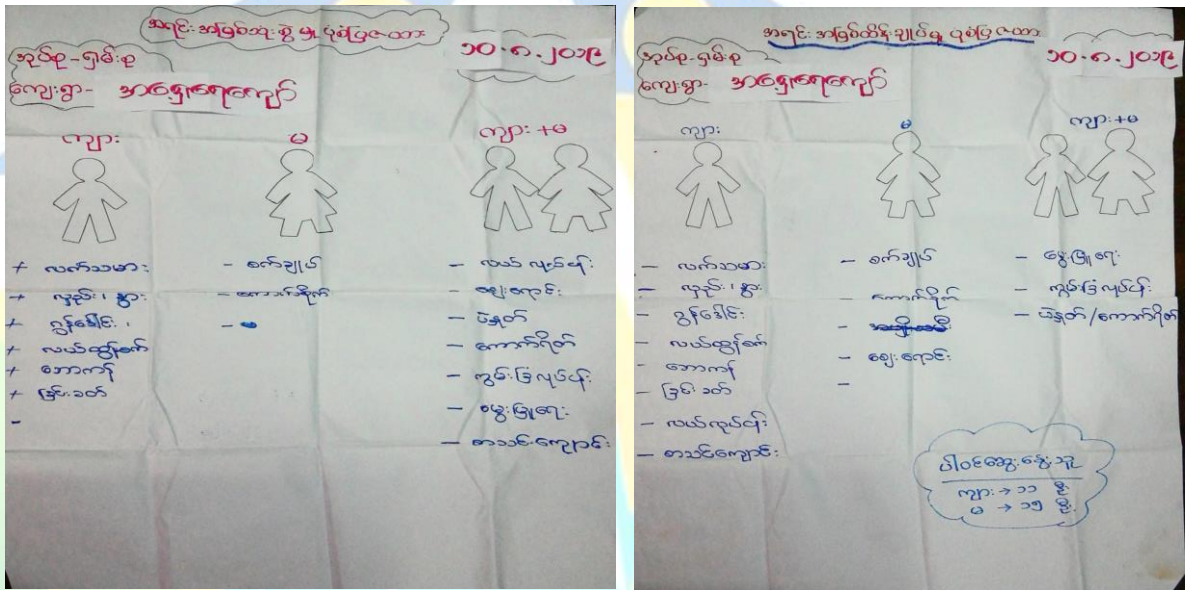 အရင်းအမြစ်သုံးစွဲမှု ပုံစံပြဇယား
၁၀.၈.၂၀၁၉
အုပ်စု-ရှမ်းစု
ကျေးရွာ- အနောက်ရေကျော်
ကျား
မ
ကျား+မ
+ လက်သမား
+ လှည်း၊ နွား
+ ဂွန်ဒေါင်း၊
+ လယ်ထွန်စက်
+ ဘောကန်
+ ခြင်းခတ်
-
- စက်ချုပ်
- ကောက်စိုက်
-
- လယ်လုပ်ငန်း
- ဈေးရောင်း
- ပဲနှုတ်
- ကောက်ရိတ်
- ကွမ်းခြံလုပ်ငန်း
- မွေးမြူရေး
- စာသင်ကျောင်း
အရင်းအမြစ်ထိန်းချုပ်မှု ပုံစံပြဇယား
၁၀.၈.၂၀၁၉
အုပ်စု-ရှမ်းစု
ကျေးရွာ- အနောက်ရေကျော်
ကျား
မ
ကျား+မ
- လက်သမား
- လှည်း၊ နွား
- ဂွန်ဒေါင်း
- လယ်ထွန်စက်
- ဘောကန်
- ခြင်းခတ်
- လယ်လုပ်ငန်း
- စာသင်ကျောင်း
- စက်ချုပ်
- ကောက်စိုက်
- ဈေးရောင်း
-
- မွေးမြူရေး
- ကွမ်းခြံလုပ်ငန်း
- ပဲနှုတ်/ကောက်ရိတ်
ပါဝင်ဆွေးနွေးသူ
ကျား → ၁၁ ဦး
မ → ၁၅ ဦး